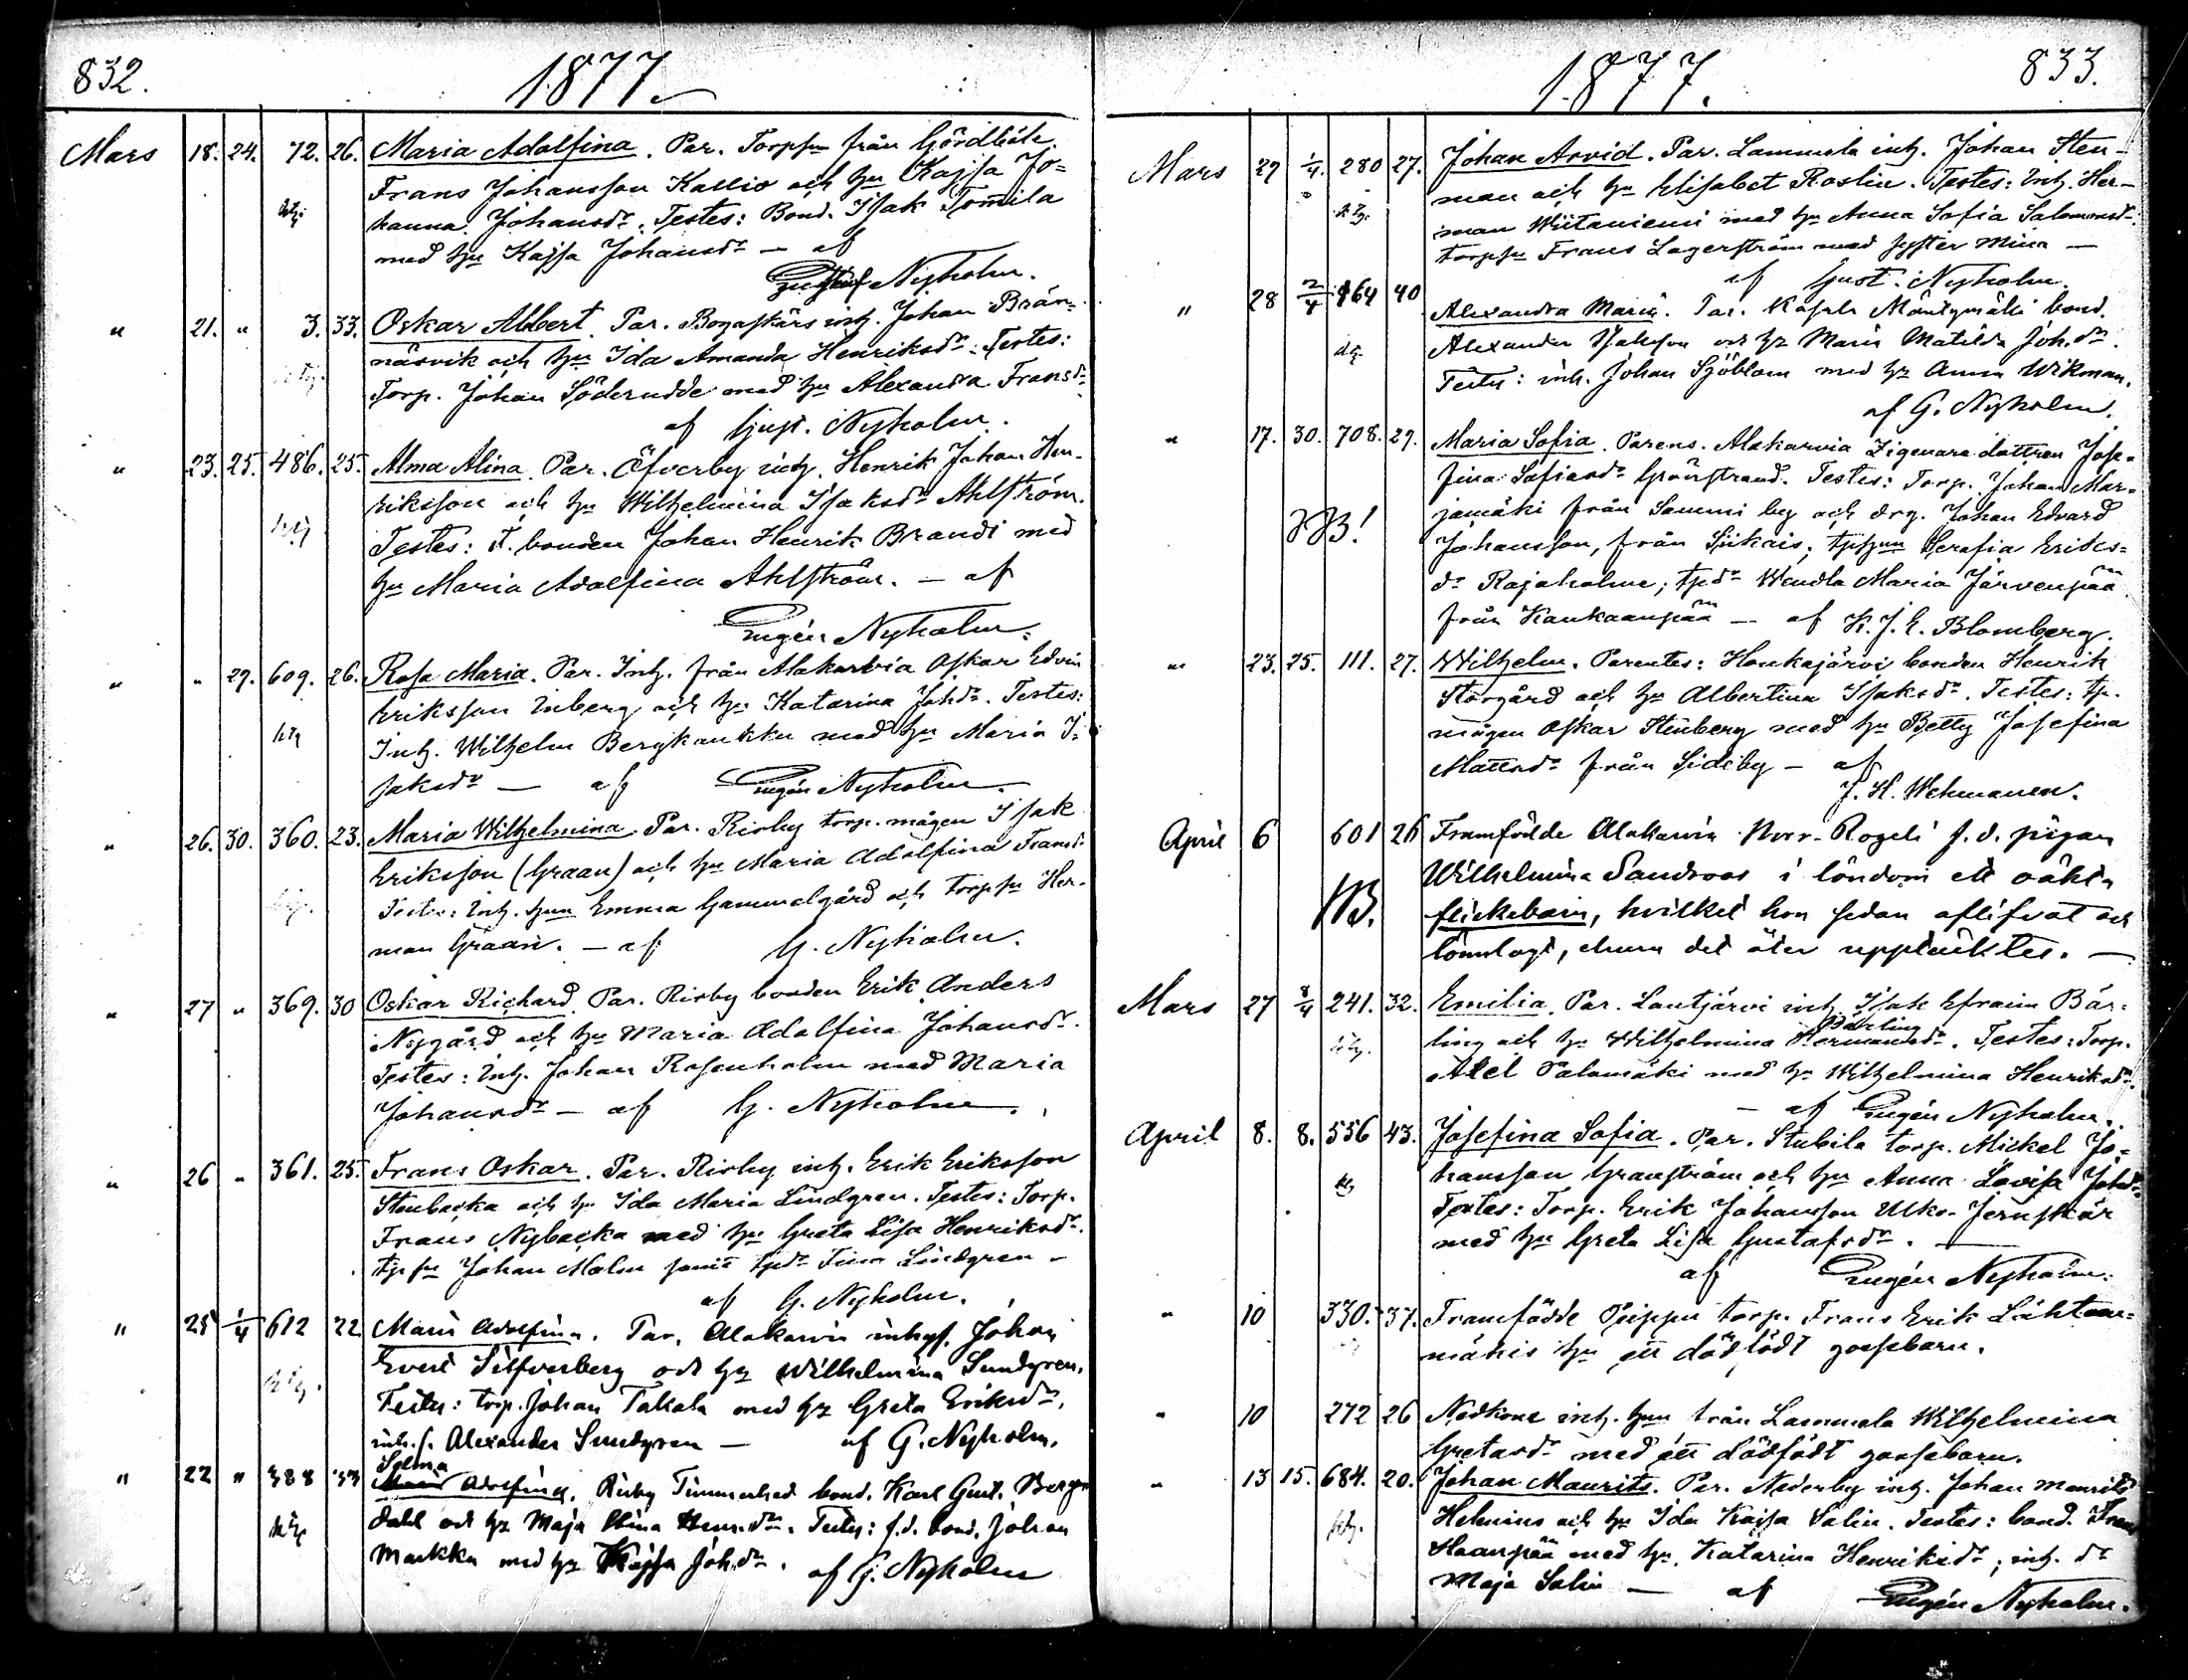 832.
1877.
Mars 18. 24. 72. 26. Maria Adolfina. Par. Torpsn från
Frans Johansson Kallio och hu Kajsa Jo-
hanna Johansdr. Testes: Bond. Isak Tomila
med hu Kajsa Johansdr — af
Nyholm.
" 21. " 3. 33. Oskar Albert. Par. Bogaskärs inh. Johan Brän-
näsvik och hu Ida Amanda Henriksdr. Testes:
Torp. Johan Söderudde med hu Alexandra Fransdr
af Gust. Nyholm.
" 23. 25. 486. 25. Alma Alina. Par. Öfverby inh. Henrik Johan Hen-
riksson och hu Wilhelmina Isaksdr Ahlström.
Testes: F. bonden Johan Henrik Brandt med
hu Maria Adolfina Ahlström. — af
Eugén Nyholm.
" " 29. 609. 26. Rosa Maria. Par. Inh. från Alakarvia Oskar Edvin
Eriksson Inberg och hu Katarina Johdr. Testes:
Inh. Wilhelm Bergkaukku med hu Maria I-
saksdr — af Eugén Nyholm.
" 26. 30. 360. 23. Maria Wilhelmina. Par. Risby torp. mågen Isak
Eriksson (Graan) och hu Maria Adolfina Fransdr
Testes: Inh. hun Emma Gammelgård och torpsn Her-
man Graan. — af G. Nyholm.
" 27 " 369. 30 Oskar Richard. Par. Risby bonden Erik Anders
Nygård och hu Maria Adolfina Johansdr.
Testes: Inh. Johan Rosenholm med Maria
Johansdr — af G. Nyholm.
" 26 " 361. 25. Frans Oskar. Par. Risby inh. Erik Eriksson
Stenbacka och hu Ida Maria Lindgren. Testes: Torp.
Frans Nybacka med hu Greta Lisa Henriksdr.
Johan Malm samt Fina Lindgren —
af G. Nyholm.
" 25 1/4 612 22 Maria Adolfina. Par. Alakarvia inhys. Johan
Evert Silfverberg och hu Wilhelmina Sundgren.
Testes: torp. Johan Takala med hu Greta Eriksdr,
inh. s. Alexander Sundgren — af G. Nyholm.
Selma
" 22 " 388 33 Maria Adolfina. Risby Timmerhed bond. Karl Gust. Berg-
dahl och hu Maja Stina Henr.dr. Testes: f.d. bond. Johan
Markku med hu Kajsa Joh.dr. af G. Nyholm
1877.
833.
Mars 27 1/4. 280 27. Johan Arvid. Par. Lammela inh. Johan Sten-
man och hu Elisabet Roslin. Testes: Inh. Her-
man Wiitaniemi med hu Anna Sofia Salomonsdr.
torpsn Frans Lagerström med syster Mina —
af Gust. Nyholm.
" 28 2/4 164 40 Alexandra Maria. Par. Kasala Mäntymäki bond.
Alexander Isakson och hu Maria Matilda Joh.dr.
Testes: inh. Johan Sjöblom med hu Anna Wikman.
af G. Nyholm.
" 17. 30. 708. 29. Maria Sofia. Parens. Alakarvia Zigenare dottren Jose-
fina Sofiasdr Grönstrand. Testes: Torp. Johan Mar-
jamäki från Sammi by och drg. Johan Edvard
Johansson, från Siikais; Serafia Eriks-
dr Rajaholme; tjdr Wendla Maria Järvenpää
från Kankaanpää — af K. J. E. Blomberg.
" 23. 25. 111. 27. Wilhelm. Parentes: Honkajärvi bonden Henrik
Storgård och hu Albertina Isaksdr. Testes: tp.
mågen Oskar Stenberg med hu Betty Josefina
Mattsdr från Sideby — af
J. H. Wehmanen.
April 6 601 26 Framfödde Alakarvia Norr-Rogeli f. d. pigan
Wilhelmina Sandroos i löndom ett oäkta
NB. flickebarn, hvilket hon sedan aflifvat och
lönnlagt, ehuru det åter upptäcktes. —
Mars 27 8/4 241. 32. Emilia. Par. Lautjärvi inh. Isak Efraim Bär-
ling och hu Wilhelmina Hermansdr. Testes: Torp.
Bärling
Axel Palomäki med hu Wilhelmina Henriksdr.
— af Eugén Nyholm.
April 8. 8. 556 43. Josefina Sofia. Par. Stubila torp. Mickel Jo-
hansson Granström och hu Anna Lovisa Johdr.
Testes: Torp. Erik Johansson Ulko-Jernskär
med hu Greta Lisa Gustafsdr. —
af Eugén Nyholm.
" 10 330. 37. Framfödde Peippu torp. Frans Erik Lähteen-
mäkis hu ett dödfödt gossebarn.
" 10 272 26 Nedkom inh. hun från Lammela Wilhelmina
Gretasdr med ett dödfödt gossebarn.
" 13 15. 684. 20. Johan Maurits. Par. Nederby inh. Johan Maurits
Helenius och hu Ida Kajsa Salin. Testes: bond. Frans
Haanpää med hu Katarina Henriksdr; inh. dr
Maja Salin — af Eugén Nyholm.